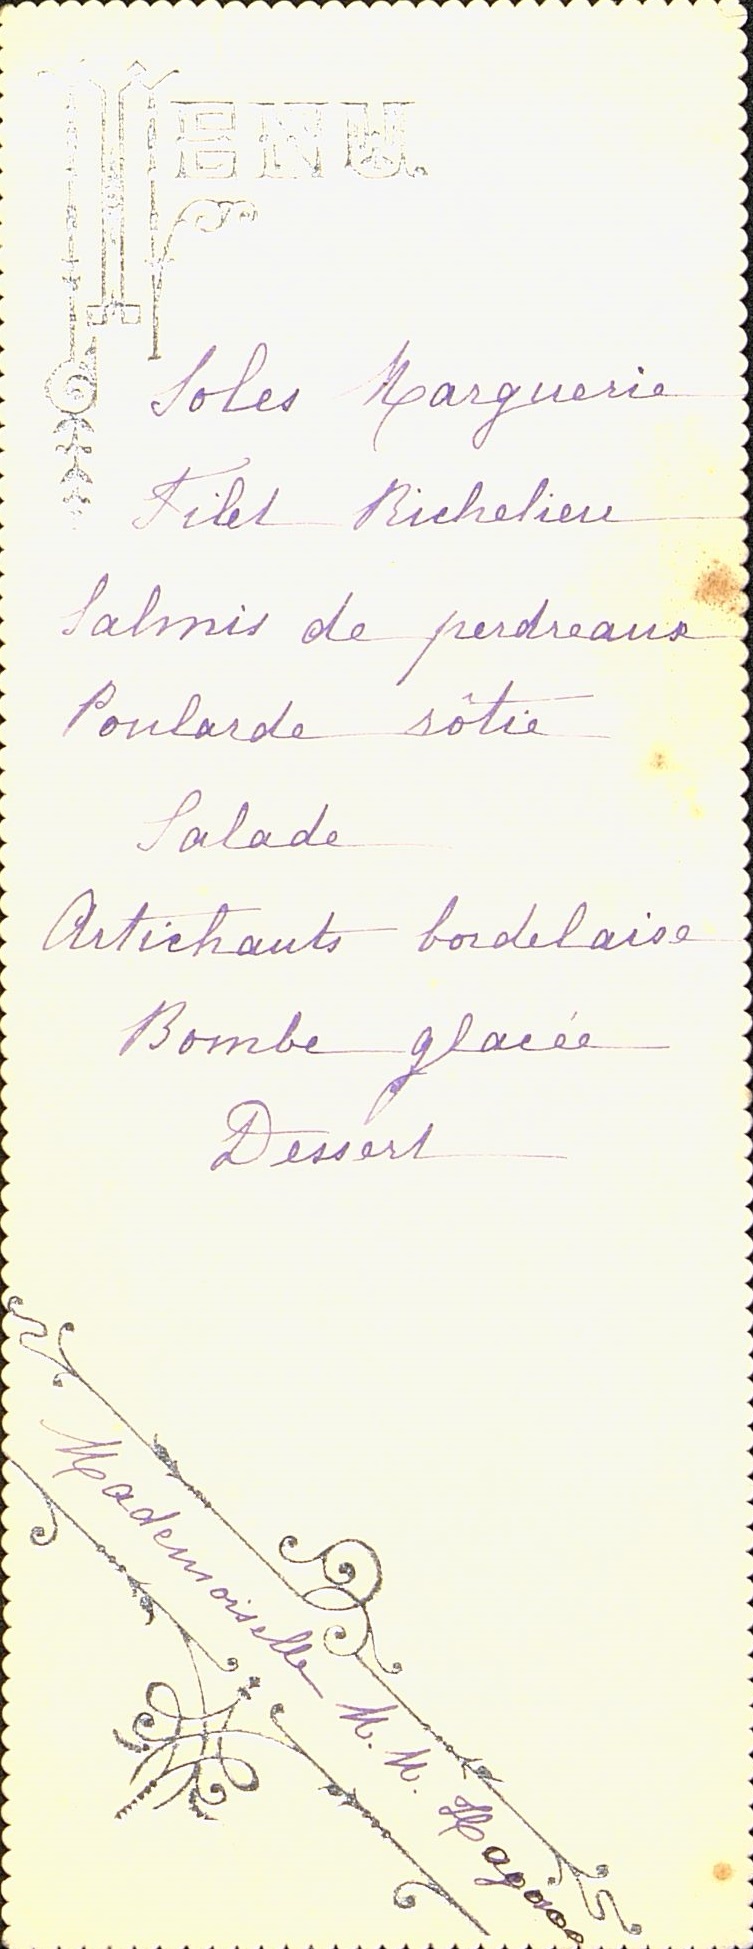 MENU.
Soles Marguerie
Filet Richelieu
Salmis de perdreaux
Poularde rôtie
Salade
Artichauts bordelaise
Bombe glacée
Dessert
Mademoiselle M. M.